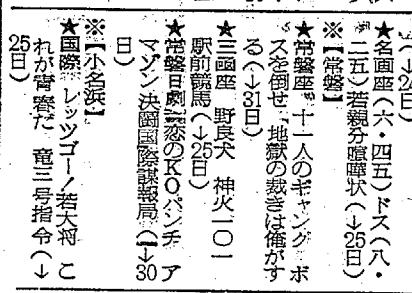 (↓24日)
★名画座(六・四五)ドス(八・
二五)若親分喧嘩状(↓25日)
※【常磐】
★常磐座 十一人のギャング ボ
スを倒せ 地獄の裁きは俺がす
る(↓31日)
★三函座 野良犬 神火一〇一
駅前競馬(↓25日)
★常磐日劇 恋のKOパンチ ア
マゾン決闘国際諜報局(↓30
日)
※【小名浜】
★国際 レッツゴー!若大将 こ
れが青春だ 竜三号指令(↓
25日)